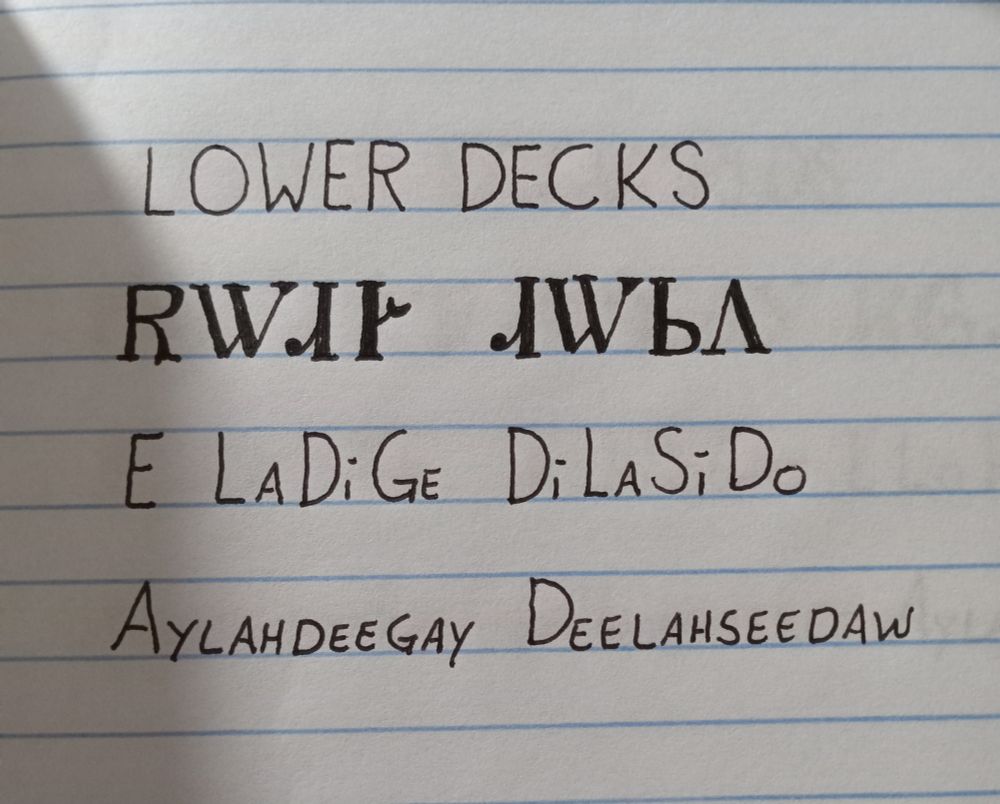 LOWER DECKS
ᎡᎳᏗᎨ ᏗᎳᏏᏙ
E LADiGE DiLASiDO
AYLAHDEEGAY DEELAHSEEDAW